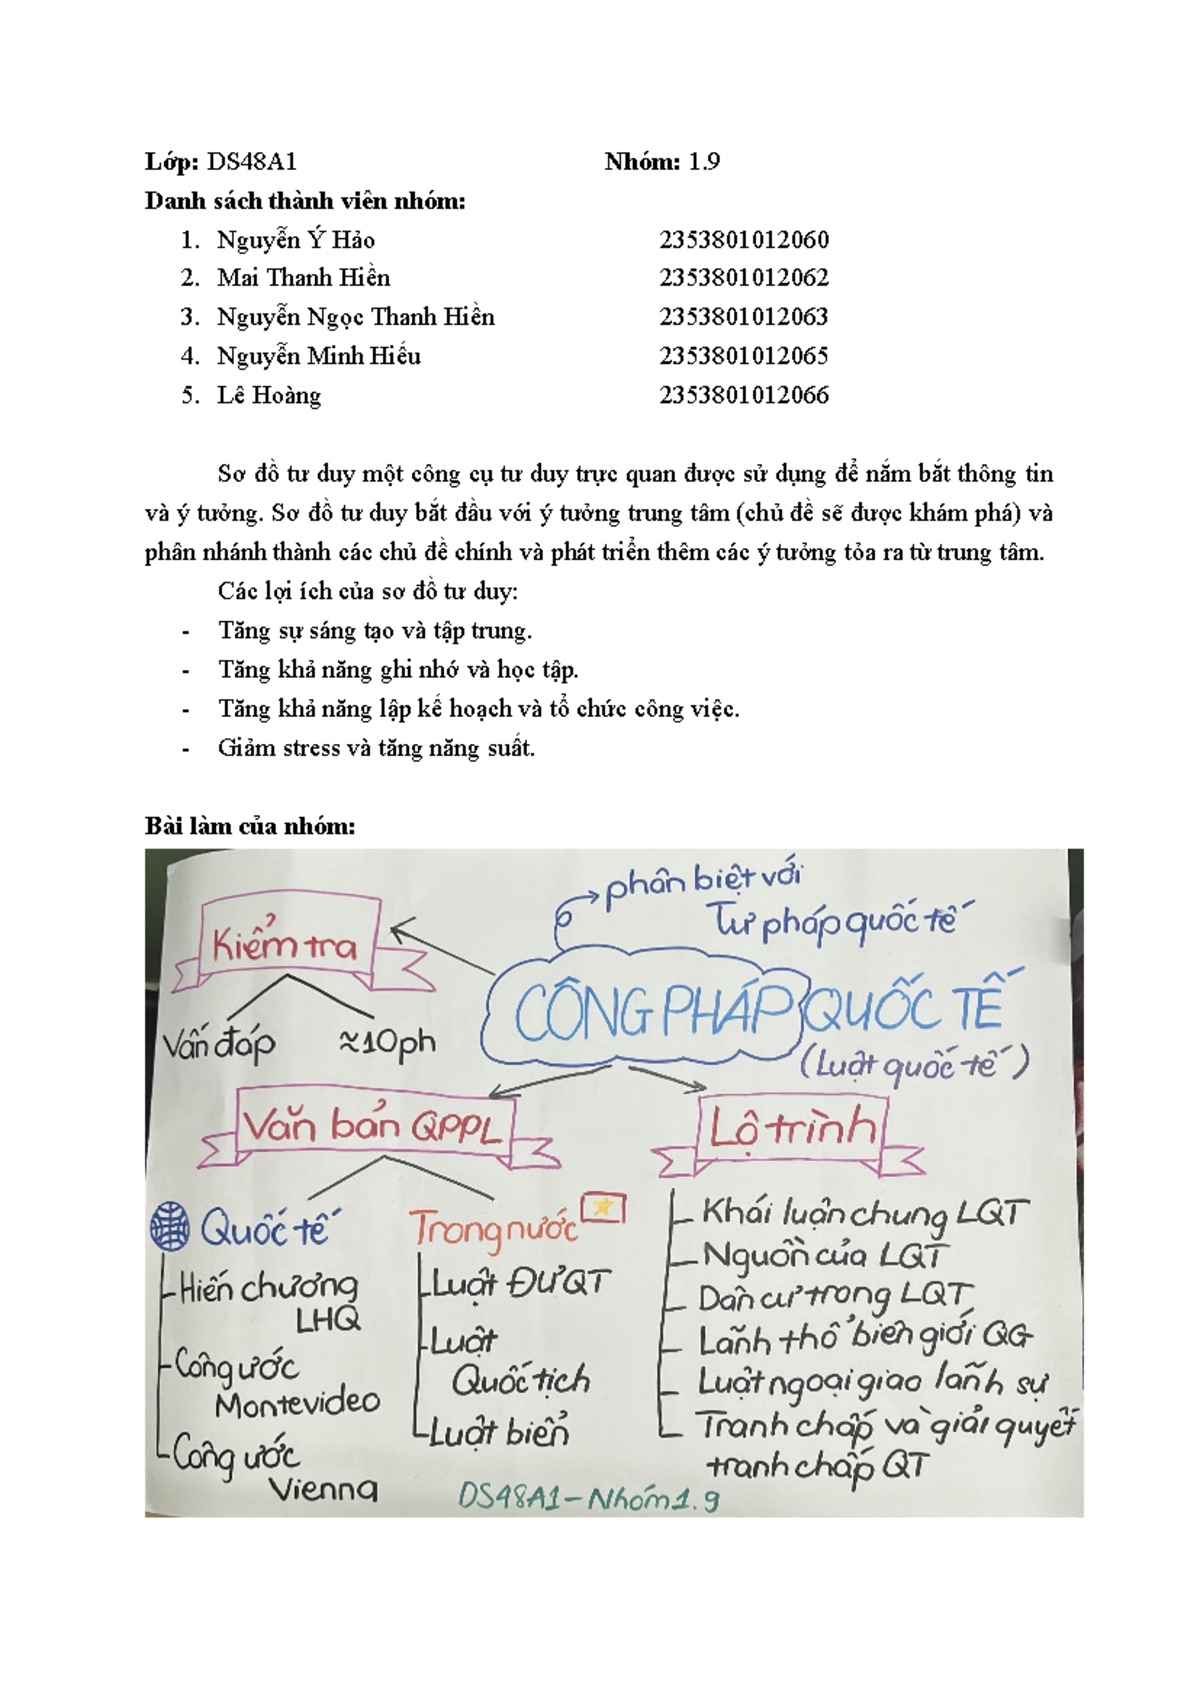 Lớp: DS48A1 Nhóm: 1.9
Danh sách thành viên nhóm:
1. Nguyễn Ý Hảo 2353801012060
2. Mai Thanh Hiền 2353801012062
3. Nguyễn Ngọc Thanh Hiền 2353801012063
4. Nguyễn Minh Hiếu 2353801012065
5. Lê Hoàng 2353801012066
Sơ đồ tư duy một công cụ tư duy trực quan được sử dụng để nắm bắt thông tin
và ý tưởng. Sơ đồ tư duy bắt đầu với ý tưởng trung tâm (chủ đề sẽ được khám phá) và
phân nhánh thành các chủ đề chính và phát triển thêm các ý tưởng tỏa ra từ trung tâm.
Các lợi ích của sơ đồ tư duy:
- Tăng sự sáng tạo và tập trung.
- Tăng khả năng ghi nhớ và học tập.
- Tăng khả năng lập kế hoạch và tổ chức công việc.
- Giảm stress và tăng năng suất.
Bài làm của nhóm:
phân biệt với
Tư pháp quốc tế
Kiểm tra
CÔNG PHÁP QUỐC TẾ
(Luật quốc tế)
Vấn đáp
≈10ph
Văn bản QPPL
Quốc tế
Hiến chương
LHQ
Công ước
Montevideo
Công ước
Vienna
Trong nước
Luật ĐƯQT
Luật
Quốc tịch
Luật biển
Lộ trình
Khái luận chung LQT
Nguồn của LQT
Dân cư trong LQT
Lãnh thổ biên giới QG
Luật ngoại giao lãnh sự
Tranh chấp và giải quyết
tranh chấp QT
DS48A1-Nhóm1.9